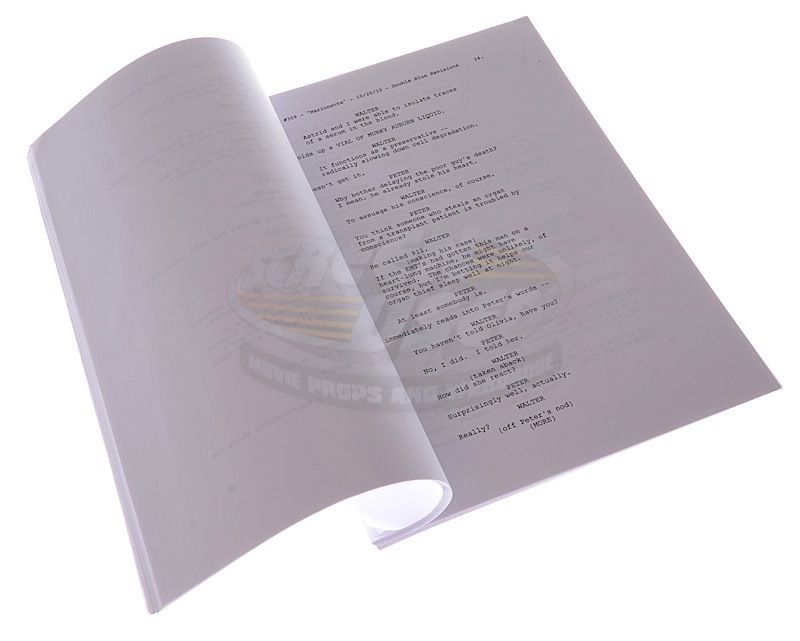 #309 - "Marionette" - 10/20/10 - Double Blue Revisions 24.
WALTER
Astrid and I were able to isolate traces
of a serum in the blood.
olds up a VIAL OF MURKY AUBURN LIQUID.
WALTER
It functions as a preservative --
radically slowing down cell degradation.
esn't get it.
PETER
Why bother delaying the poor guy's death?
I mean, he already stole his heart.
WALTER
To assuage his conscience, of course.
PETER
You think someone who steals an organ
from a transplant patient is troubled by
conscience?
WALTER
He called 911.
(making his case)
If the EMT's had gotten this man on a
heart-lung machine, he might have
survived. The chances were unlikely, of
course, but I'm betting it helps our
organ thief sleep well at night.
PETER
At least somebody is.
immediately reads into Peter's words --
WALTER
You haven't told Olivia, have you?
PETER
No, I did. I told her.
WALTER
(taken aback)
How did she react?
PETER
Surprisingly well, actually.
WALTER
Really? (off Peter's nod)
(MORE)
MOVIE PROPS AND